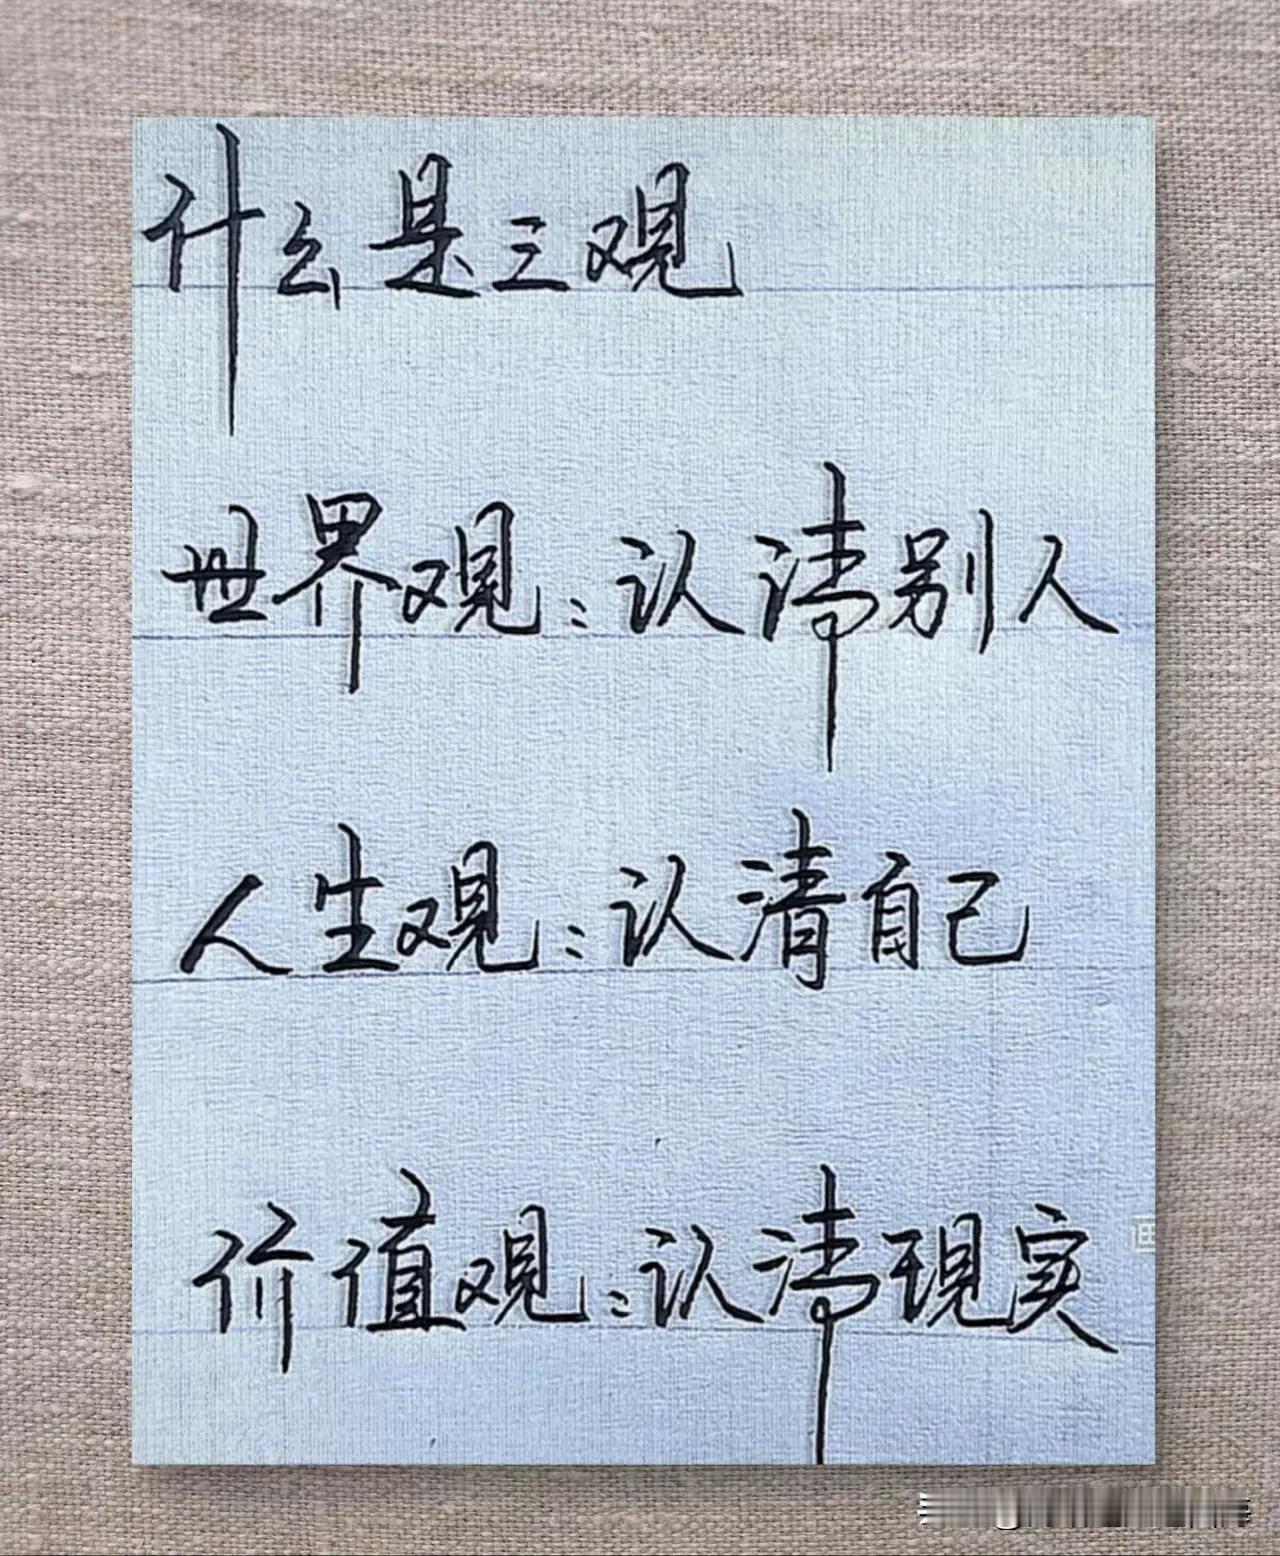 什么是三观
世界观：认清别人
人生观：认清自己
价值观：认清现实